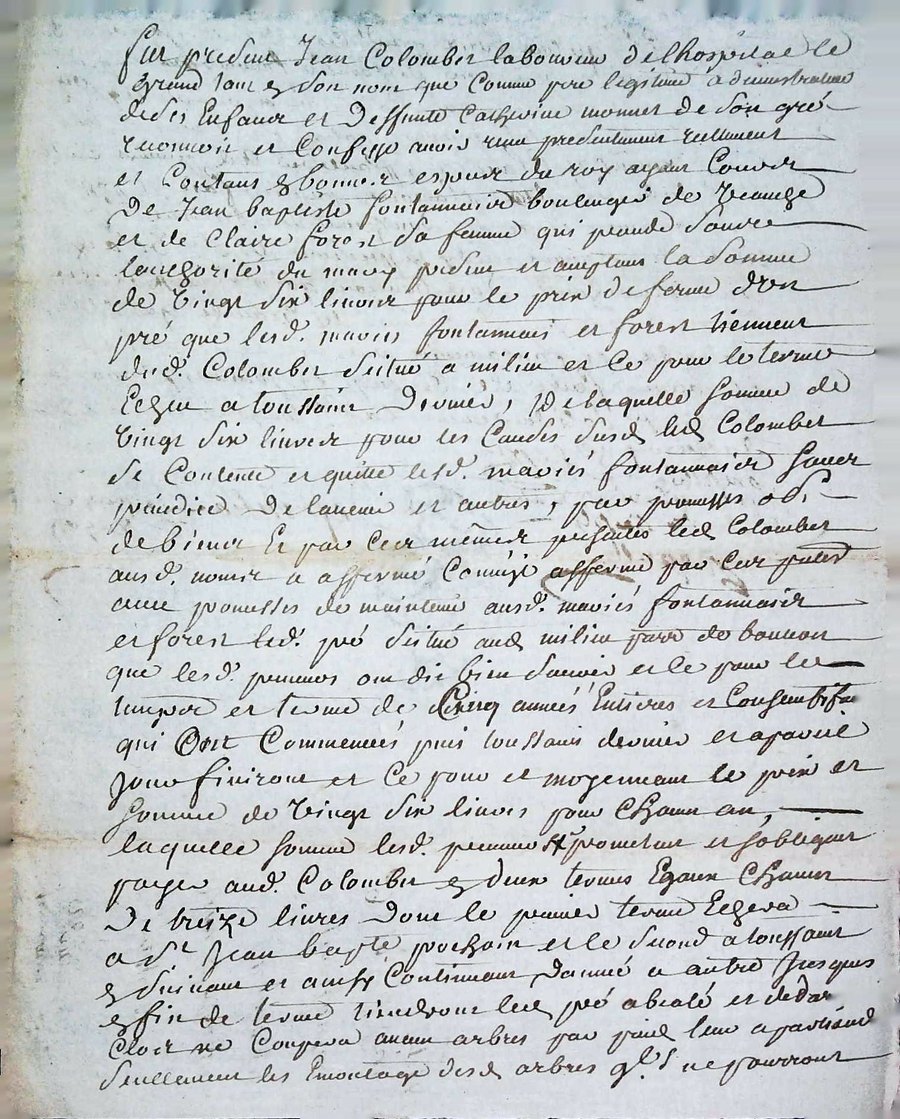 fut present Jean Colomber laboureur de lhospital le
grand tant en son nom que comme pere legitime administrateur
de ses Enfants et deffunte Catherine monnet de son gré
reconnoit et Confesse avoir reçu presentement reellement
et Contans en bonnes especes du roy ayant Cours
De Jean baptiste fontannaise boulenger de
et de Claire forest sa femme qui prande soubz
lautorité du mary present et acceptans la somme
de vingt six livres pour le prix de ferme d'un
pré que lesd. mariés fontannais et forest tiennent
dud. Colomber situé a milieu et Ce pour le terme
Echeu a toussaint dernier, De laquelle somme de
vingt six livres pour les Causes susd. led Colomber
se Contente et quitte lesd. mariés fontannaise sans
prejudice de lavenir et autres, par promesses obl.
de biens Et par Ces mêmes presentes led Colomber
ausd. noms a affermé Comme il afferme par Ces presentes
avec promesses de maintenir ausd. mariés fontannaise
et forest led. pré situé aud milieu parr de
que lesd. preneurs ont dit bien sçavoir et ce pour le
temps et terme de Cinq années Entieres et Consecutifve
qui Ont Commencés puis toussaint dernier et a pareil
Jour finiront et Ce pour et moyennant le prix et
somme de vingt six livres pour Chacun an,
laquelle somme lesd. preneurs promettent et sobligent
payer aud. Colomber en deux termes Egaux Chacun
De treize livres dont le premier terme Echera
a St Jean bapte prochain et le second a toussaint
en suivant et ainsy Continuant dannée a autre Jusques
en fin de terme tiendront led pré
Clos ne Couperont aucun arbres par pied leur apartiend
seullement les Emontage desd arbres qls ne pourront